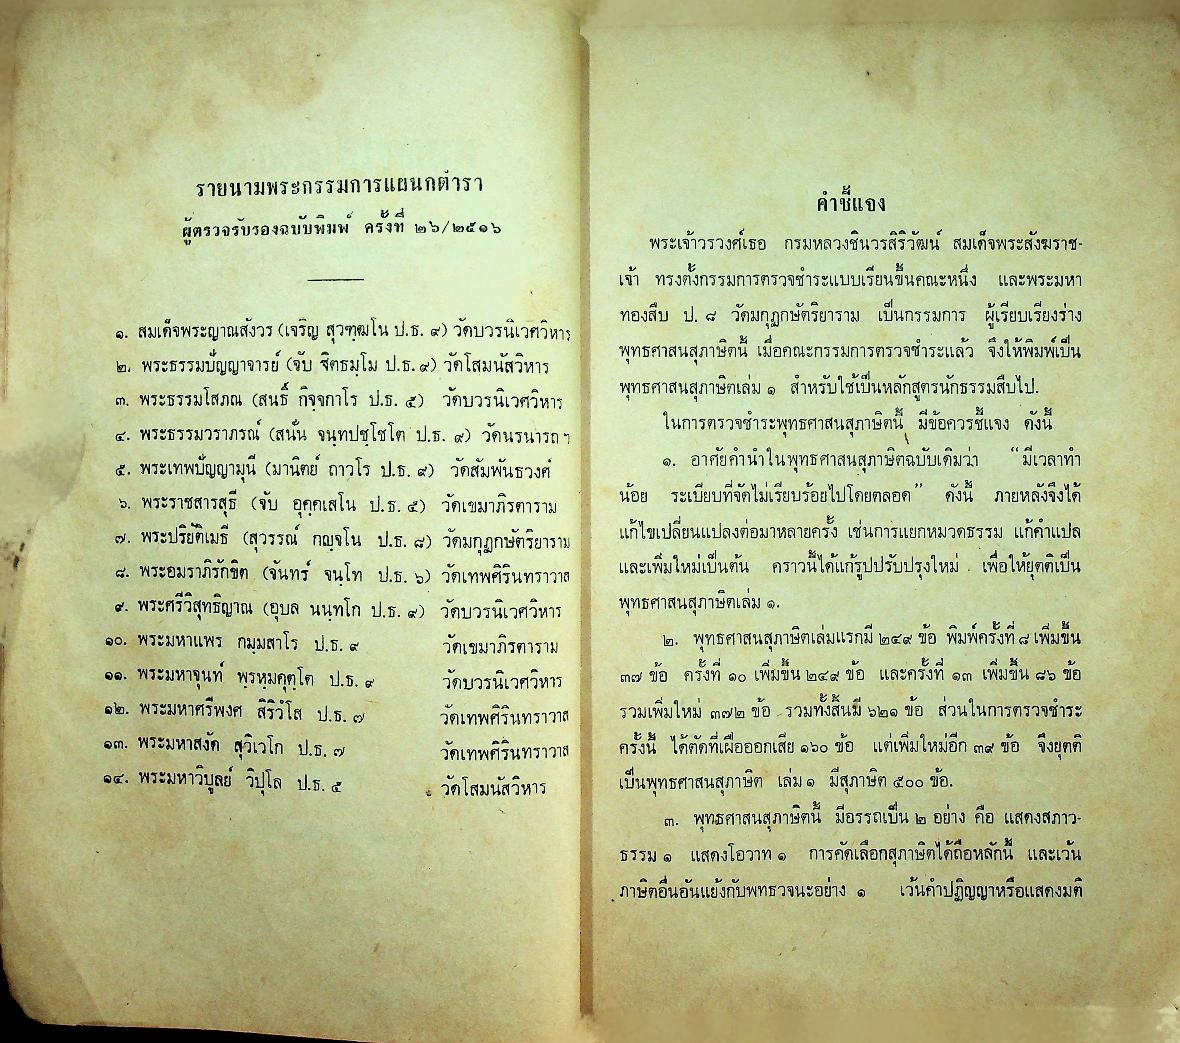 รายนามพระกรรมการแผนกตำรา
ผู้ตรวจรับรองฉบับพิมพ์ ครั้งที่ ๒๖/๒๕๑๖
๑. สมเด็จพระญาณสังวร (เจริญ สุวฑฺฒโน ป.ธ. ๙) วัดบวรนิเวศวิหาร
๒. พระธรรมปัญญาจารย์ (จับ ฐิตธมฺโม ป.ธ. ๙) วัดโสมนัสวิหาร
๓. พระธรรมโสภณ (สนธิ์ กิจฺจกาโร ป.ธ. ๕) วัดบวรนิเวศวิหาร
๔. พระธรรมวราภรณ์ (สนั่น จนฺทปชฺโชโต ป.ธ. ๙) วัดนรนารถฯ
๕. พระเทพปัญญามุนี (มานิตย์ ถาวโร ป.ธ. ๙) วัดสัมพันธวงศ์
๖. พระราชสารสุธี (จับ อุคฺคเสโน ป.ธ. ๕) วัดเขมาภิรตาราม
๗. พระปริยัติเมธี (สุวรรณ์ กญฺจโน ป.ธ. ๘) วัดมกุฏกษัตริยาราม
๘. พระอมราภิรักขิต (จันทร์ จนฺโท ป.ธ. ๖) วัดเทพศิรินทราวาส
๙. พระศรีวิสุทธิญาณ (อุบล นนฺทโก ป.ธ. ๙) วัดบวรนิเวศวิหาร
๑๐. พระมหาแพร กมฺมสาโร ป.ธ. ๙ วัดเขมาภิรตาราม
๑๑. พระมหาจุนท์ พฺรหฺมคุตฺโต ป.ธ. ๙ วัดบวรนิเวศวิหาร
๑๒. พระมหาศรีพงศ สิริวํโส ป.ธ. ๗ วัดเทพศิรินทราวาส
๑๓. พระมหาสงัด สุวิเวโก ป.ธ. ๗ วัดเทพศิรินทราวาส
๑๔. พระมหาวิบูลย์ วิปุโล ป.ธ. ๕ วัดโสมนัสวิหาร
คำชี้แจง
พระเจ้าวรวงศ์เธอ กรมหลวงชินวรสิริวัฒน์ สมเด็จพระสังฆราช-
เจ้า ทรงตั้งกรรมการตรวจชำระแบบเรียนขึ้นคณะหนึ่ง และพระมหา
ทองสืบ ป. ๘ วัดมกุฏกษัตริยาราม เป็นกรรมการ ผู้เรียบเรียงร่าง
พุทธศาสนสุภาษิตนี้ เมื่อคณะกรรมการตรวจชำระแล้ว จึงให้พิมพ์เป็น
พุทธศาสนสุภาษิตเล่ม ๑ สำหรับใช้เป็นหลักสูตรนักธรรมสืบไป.
ในการตรวจชำระพุทธศาสนสุภาษิตนี้ มีข้อควรชี้แจง ดังนี้
๑. อาศัยคำนำในพุทธศาสนสุภาษิตฉบับเดิมว่า “มีเวลาทำ
น้อย ระเบียบที่จัดไม่เรียบร้อยไปโดยตลอด” ดังนี้ ภายหลังจึงได้
แก้ไขเปลี่ยนแปลงต่อมาหลายครั้ง เช่นการแยกหมวดธรรม แก้คำแปล
และเพิ่มใหม่เป็นต้น คราวนี้ได้แก้รูปปรับปรุงใหม่ เพื่อให้ยุตติเป็น
พุทธศาสนสุภาษิตเล่ม ๑.
๒. พุทธศาสนสุภาษิตเล่มแรกมี ๒๔๙ ข้อ พิมพ์ครั้งที่ ๘ เพิ่มขึ้น
๓๗ ข้อ ครั้งที่ ๑๐ เพิ่มขึ้น ๒๔๙ ข้อ และครั้งที่ ๑๓ เพิ่มขึ้น ๘๖ ข้อ
รวมเพิ่มใหม่ ๓๗๒ ข้อ รวมทั้งสิ้นมี ๖๒๑ ข้อ ส่วนในการตรวจชำระ
ครั้งนี้ ได้ตัดที่เฝือออกเสีย ๑๖๐ ข้อ แต่เพิ่มใหม่อีก ๓๙ ข้อ จึงยุตติ
เป็นพุทธศาสนสุภาษิต เล่ม ๑ มีสุภาษิต ๕๐๐ ข้อ.
๓. พุทธศาสนสุภาษิตนี้ มีอรรถเป็น ๒ อย่าง คือ แสดงสภาว-
ธรรม ๑ แสดงโอวาท ๑ การคัดเลือกสุภาษิตได้ถือหลักนี้ และเว้น
ภาษิตอื่นอันแย้งกับพุทธวจนะอย่าง ๑ เว้นคำปฏิญญาหรือแสดงมติ